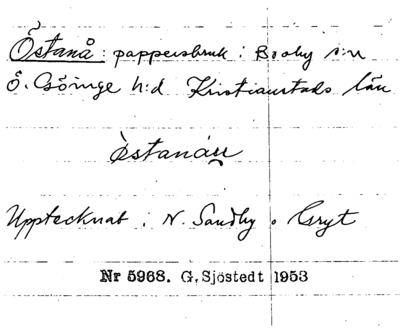 Östanå: pappersbruk i Broby s:n
Ö. Göinge h:d Kristianstads län
Upptecknat i N. Sandby o Gryt
Nr 5968. G. Sjöstedt 1953